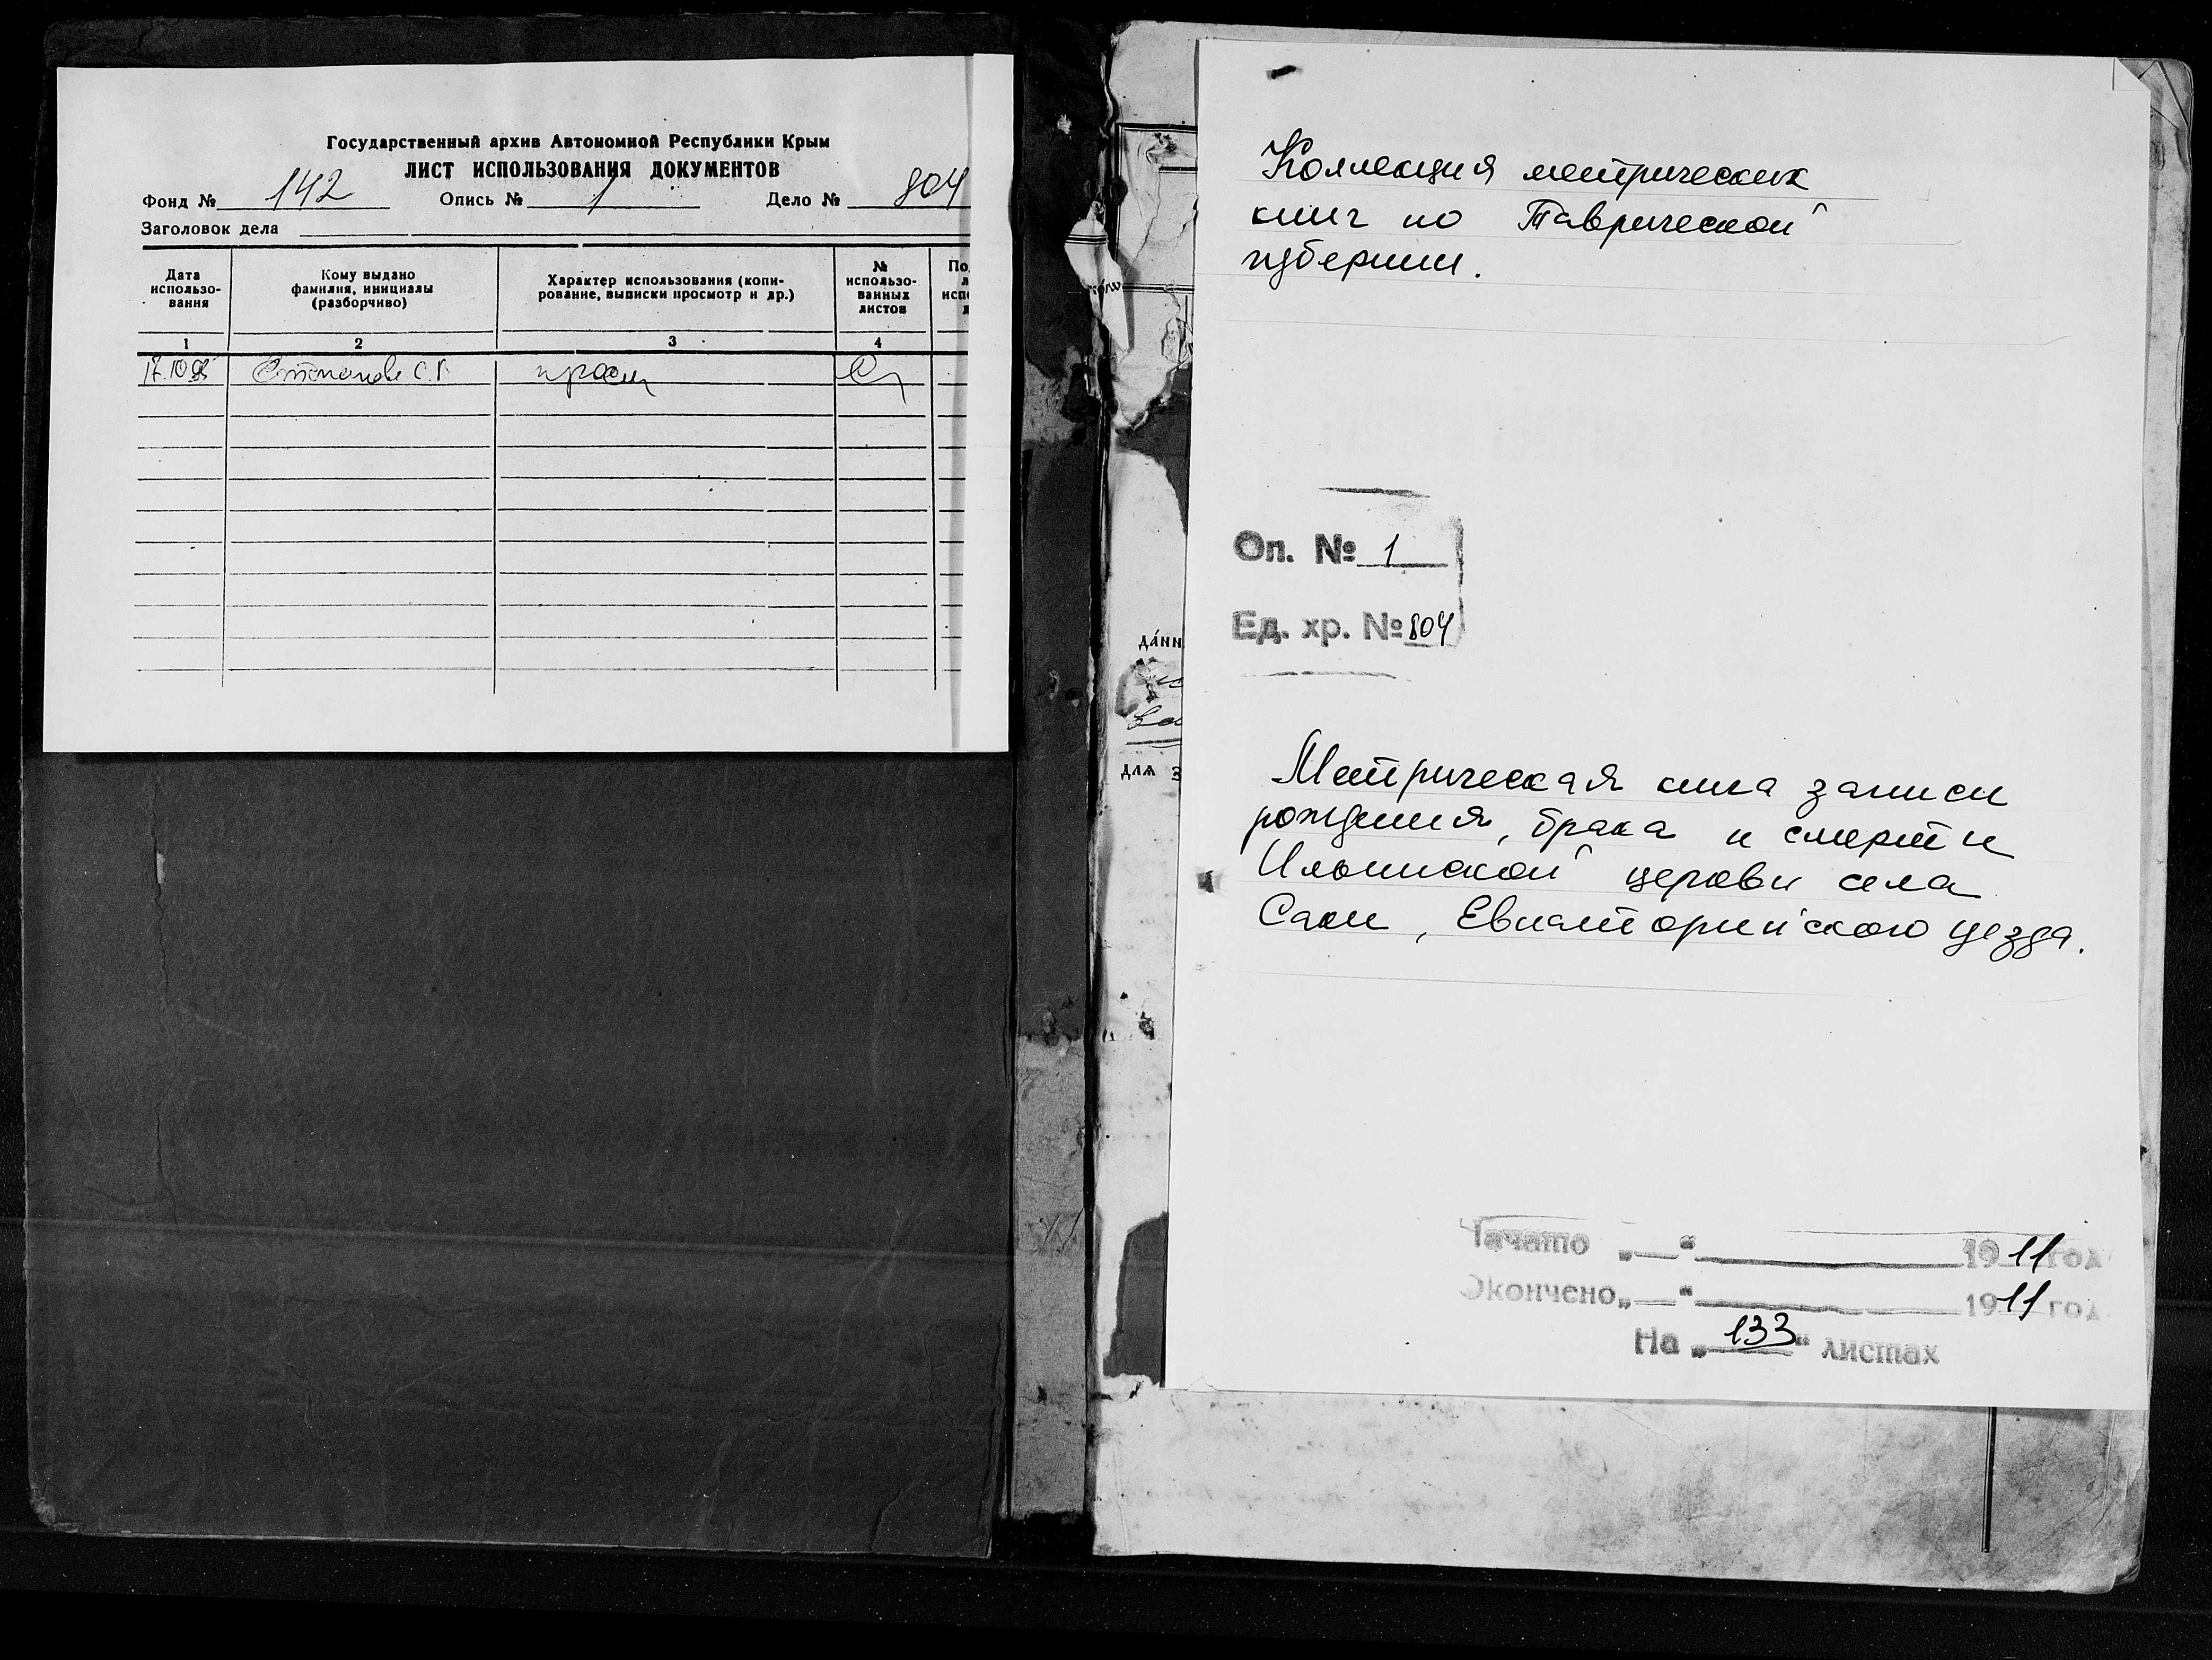 Государственный архив Автономной Республики Крым
ЛИСТ ИСПОЛЬЗОВАНИЯ ДОКУМЕНТОВ
Фонд № 142 Опись № 1 Дело № 804
Заголовок дела
Дата использо-вания
Кому выдано фамилия, инициалы (разборчиво)
Характер использования (копи-рование, выписки просмотр и др.)
№ использо-ванных листов
1 2 3 4
17.10.95 С.Г.
Коллекция метрических
книг по Таврической
губернии.
Оп. № 1
Ед. хр. № 804
да́нн
для з
Метрическая книга записи
рождения, брака и смерти
Ильинской церкви села
Саки, Евпаторийского уезда.
Начато „ “ 1911 год
Окончено „ “ 1911 год
На „133“ листах